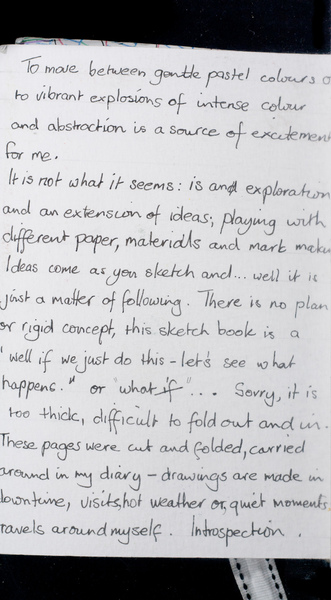 To move between gentle pastel colours o
to vibrant explosions of intense colour
and abstraction is a source of excitement
for me.
It is not what it seems: is and exploration
and an extension of ideas; playing with
different paper, materials and mark makin
Ideas come as you sketch and... well it is
just a matter of following. There is no plan
or rigid concept, this sketch book is a
"well if we just do this - let's see what
happens." or "what if"... Sorry, it is
too thick, difficult to fold out and in.
These pages were cut and folded, carried
around in my diary - drawings are made in
downtime, visits, hot weather or, quiet moments
travels around myself. Introspection.